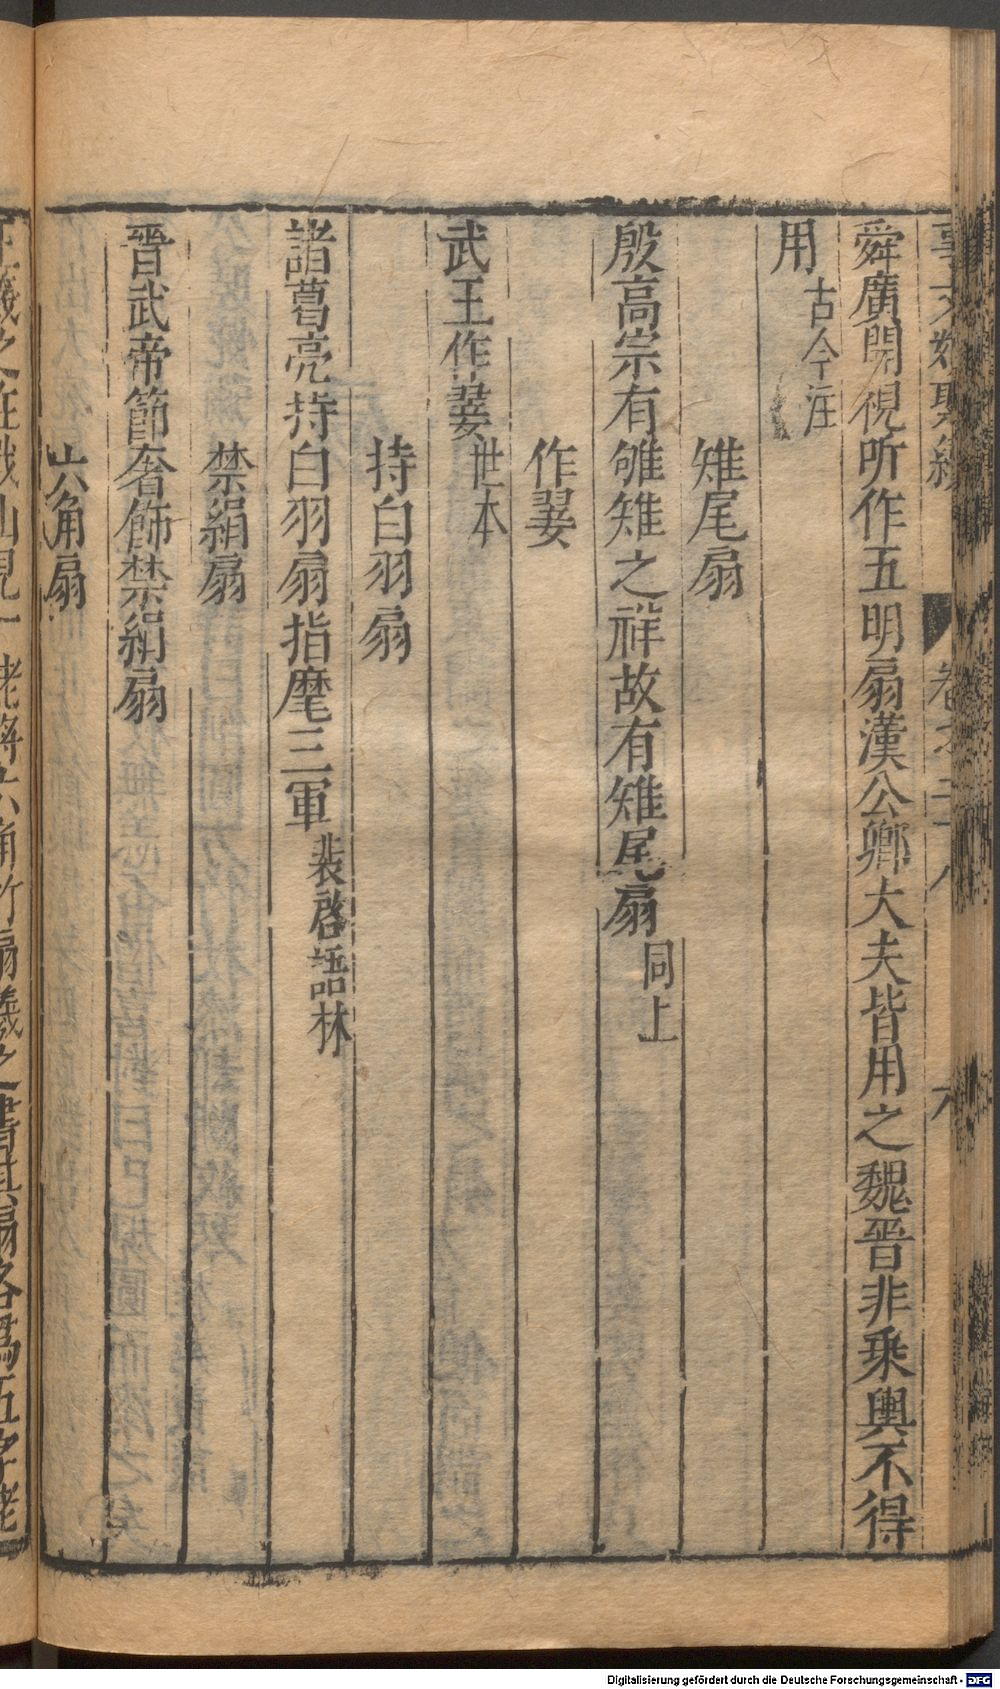 卷之二十八
六
舜廣開視听作五明扇漢公卿大夫皆用之魏晉非乘輿不得
用古今注
雉尾扇
殷高宗有雊雉之祥故有雉尾扇同上
作翣
武王作翣世本
持白羽扇
諸葛亮持白羽扇指麾三軍裴啓語林
禁絹扇
晉武帝節奢飾禁絹扇
六角扇
老將六角竹扇羲之書其扇各爲五字老
Digitalisierung gefördert durch die Deutsche Forschungsgemeinschaft - DFG